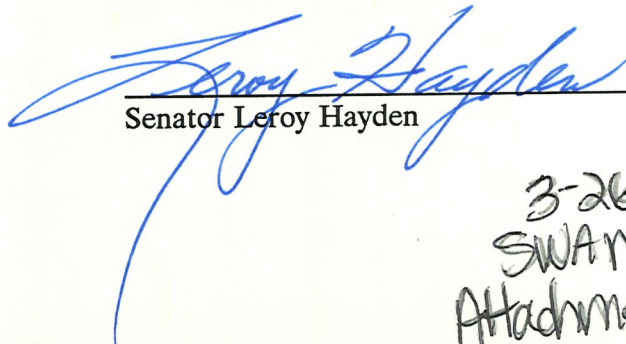 Leroy Hayden
Senator Leroy Hayden
3-26
SWAM
Attachm